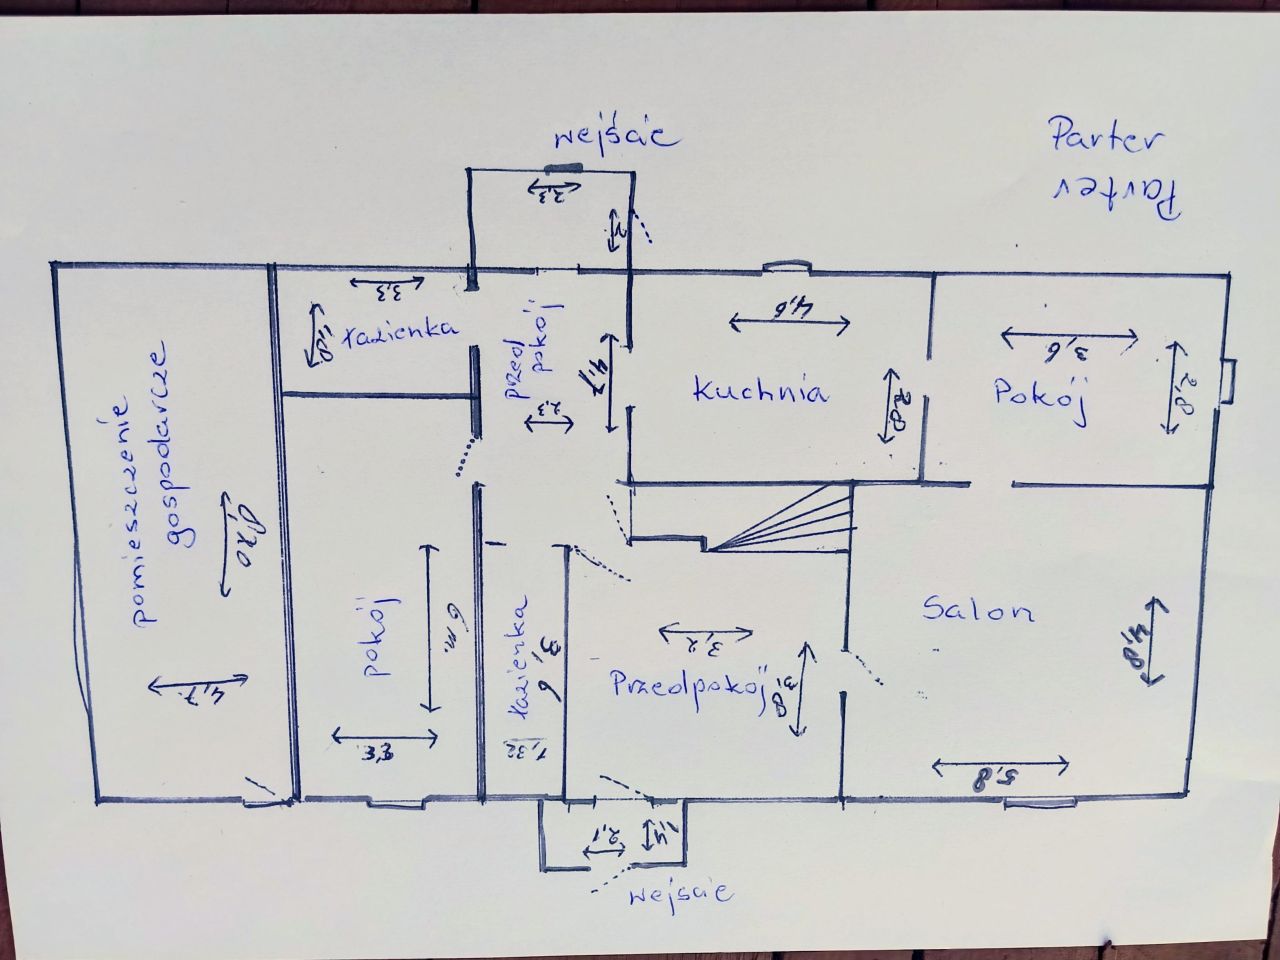 wejście
Parter
Parter
2,3
2
3,3
1,8
łazienka
przed
pokój
4,7
2,3
4,6
Kuchnia
2,8
3,6
Pokój
2,8
pomieszczenie
gospodarcze
8,20
4,7
pokój
6 m.
3,3
łazienka
3,6
1,32
3,2
Przedpokój
3,8
Salon
4,8
5,8
2,1
1,4
wejście